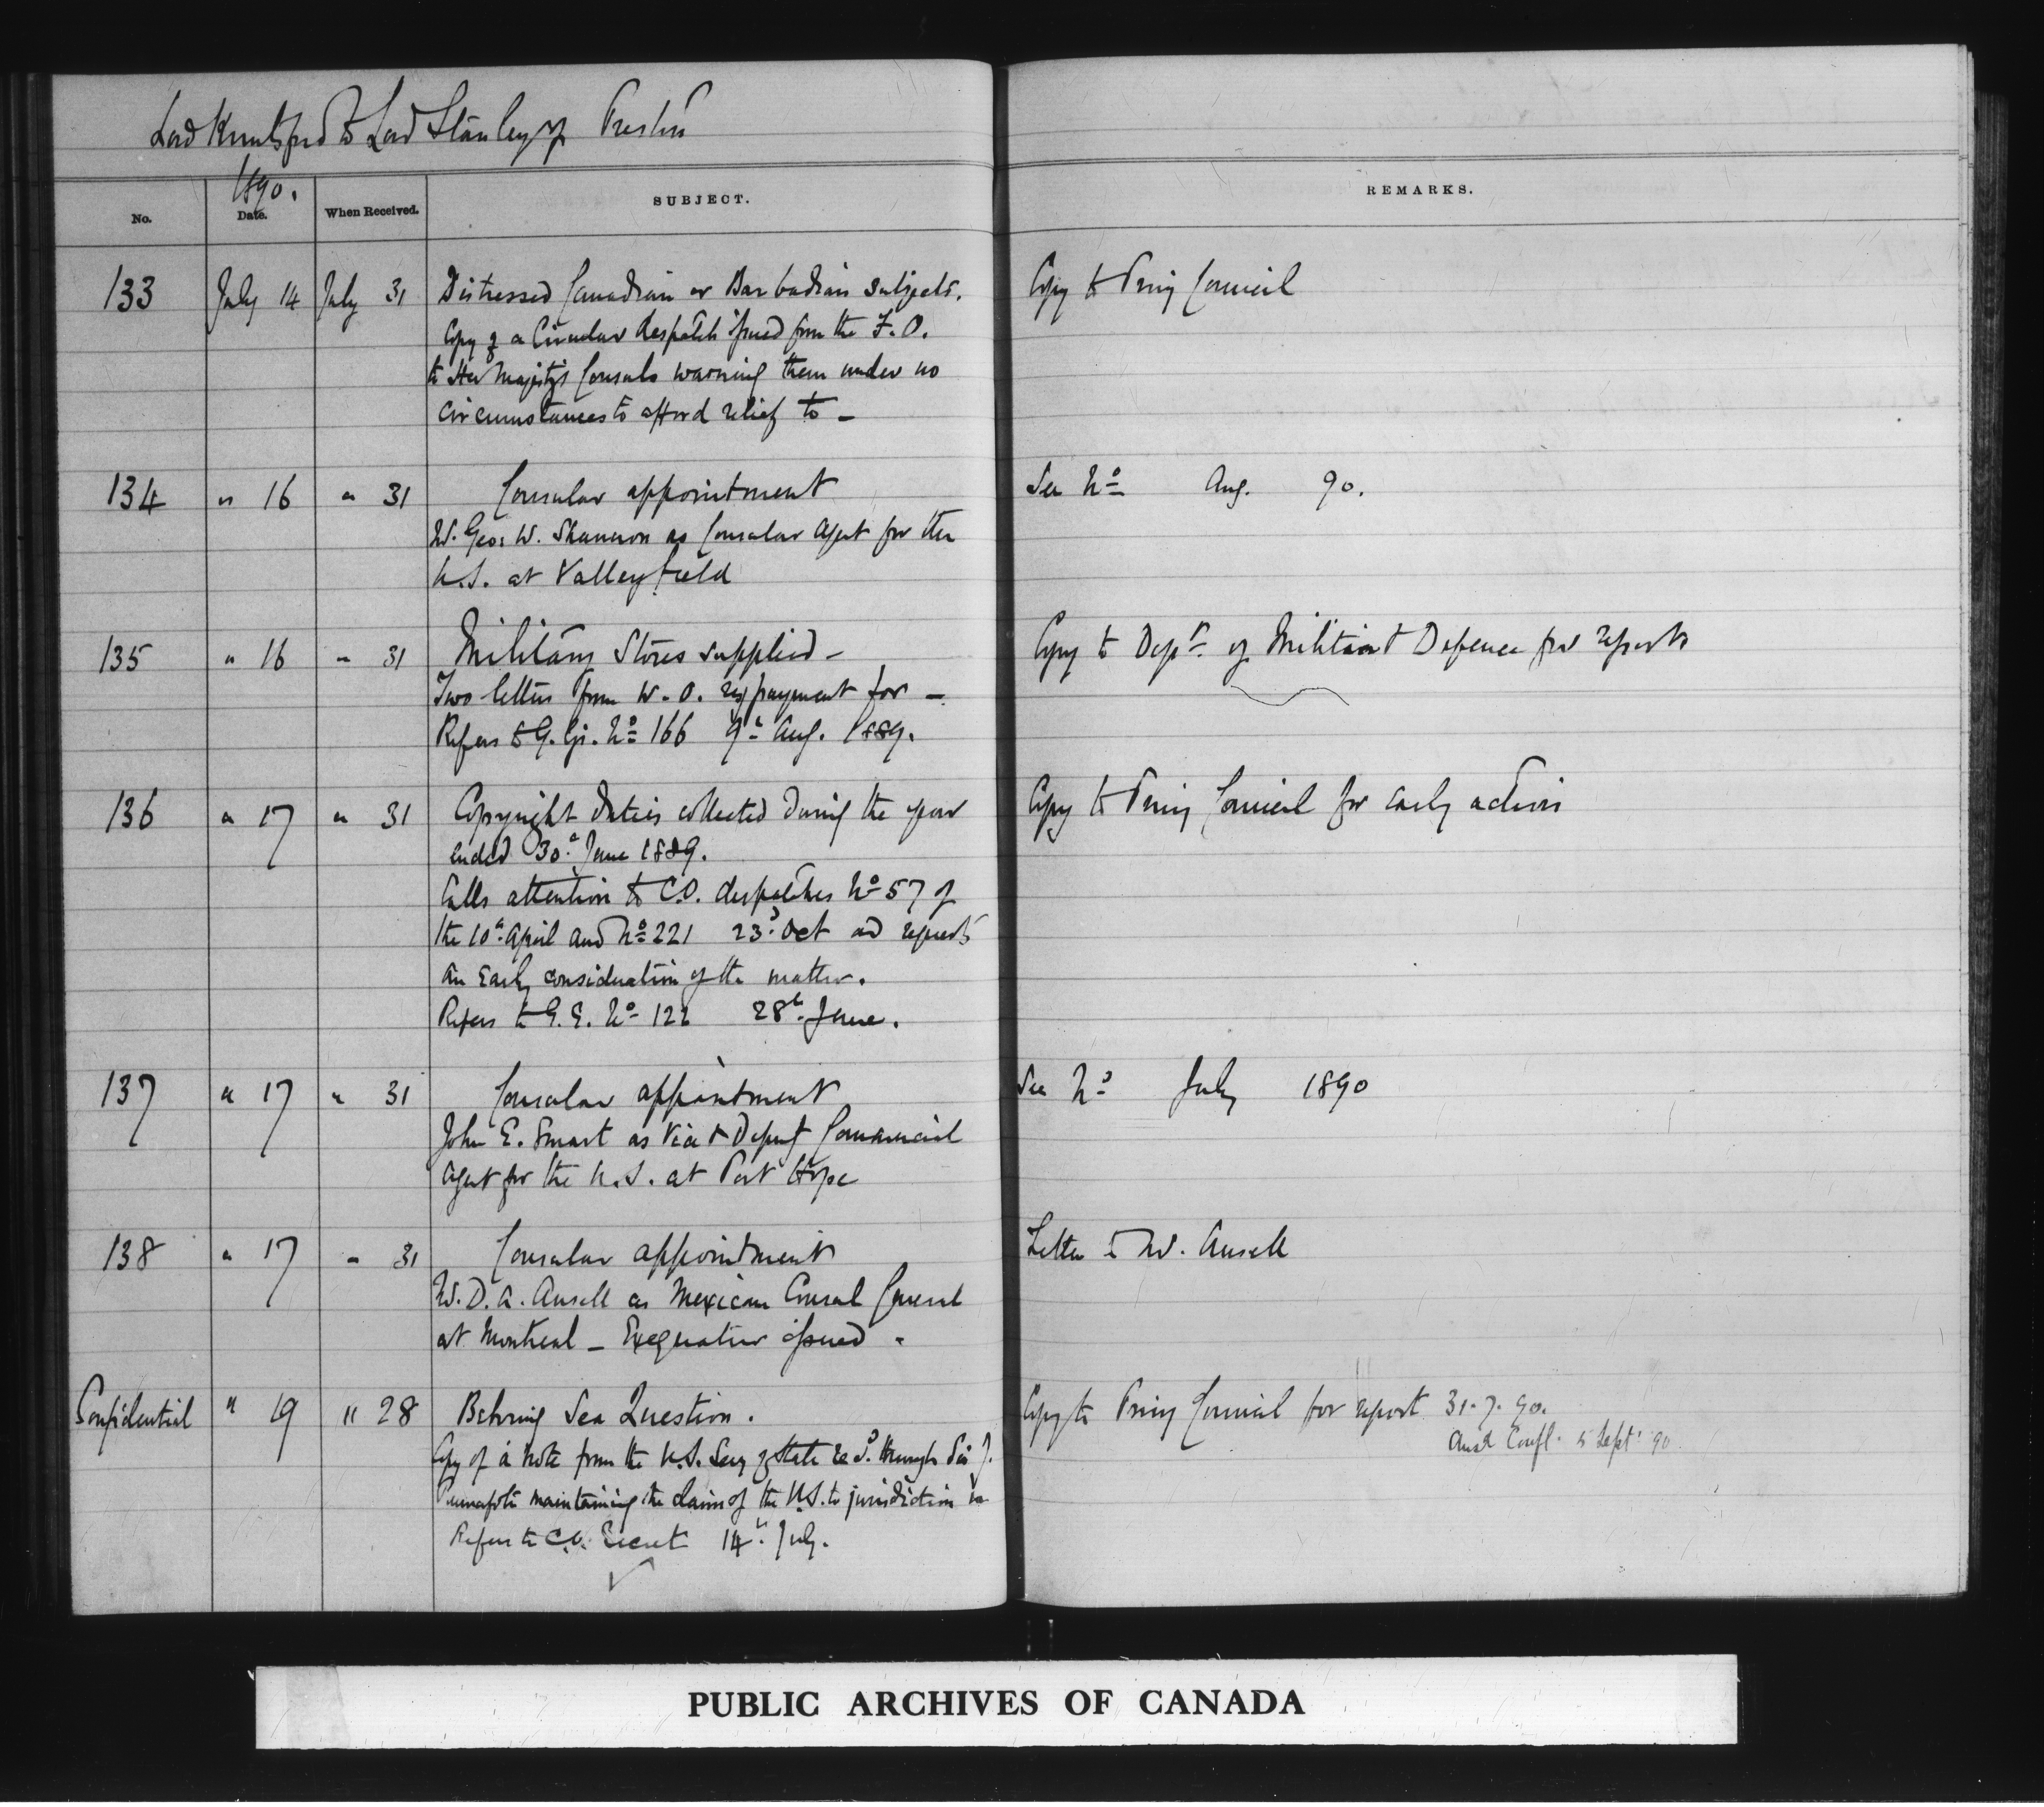 Lord Knutsford to Lord Stanley of Preston
1890.
No. Date. When Received. SUBJECT. REMARKS.
133 July 14 July 31 Distressed Canadian or Barbadian subjects. Copy to Privy Council
Copy of a Circular despatch issued from the F.O.
to Her Majesty's Consuls warning them under no
circumstances to afford relief to —
134 " 16 " 31 Consular appointment See No Aug. 90.
Mr. Geo. W. Shannon as Consular Agent for the
U.S. at Valleyfield
135 " 16 " 31 Military Stores supplied — Copy to Dept of Militia & Defence for report
Two letters from W.O. re payment for —
Refers to G.G. No 166 9th Aug. 1889.
136 " 17 " 31 Copyright duties collected during the year Copy to Privy Council for early action
ended 30th June 1889.
Calls attention to C.O. despatches No 57 of
the 10th April and No 221 23d Oct and requests
an early consideration of the matter.
Refers to G.G. No 122 28th June.
137 " 17 " 31 Consular appointment See No July 1890
John E. Smart as Vice & Deputy Commercial
Agent for the U.S. at Port Hope
138 " 17 " 31 Consular appointment Letter to Mr. Ansell
Mr. D. A. Ansell as Mexican Consul General
at Montreal — Exequatur issued.
Confidential " 19 " 28 Behring Sea Question. Copy to Privy Council for report 31.7.90.
Ansd Confl. 5 Sept. 90
Copy of a note from the U.S. Secy of State recd. through Sir J.
Pauncefote maintaining the claim of the U.S. to jurisdiction in
Refers to C.O. Secret 14th July.
PUBLIC ARCHIVES OF CANADA